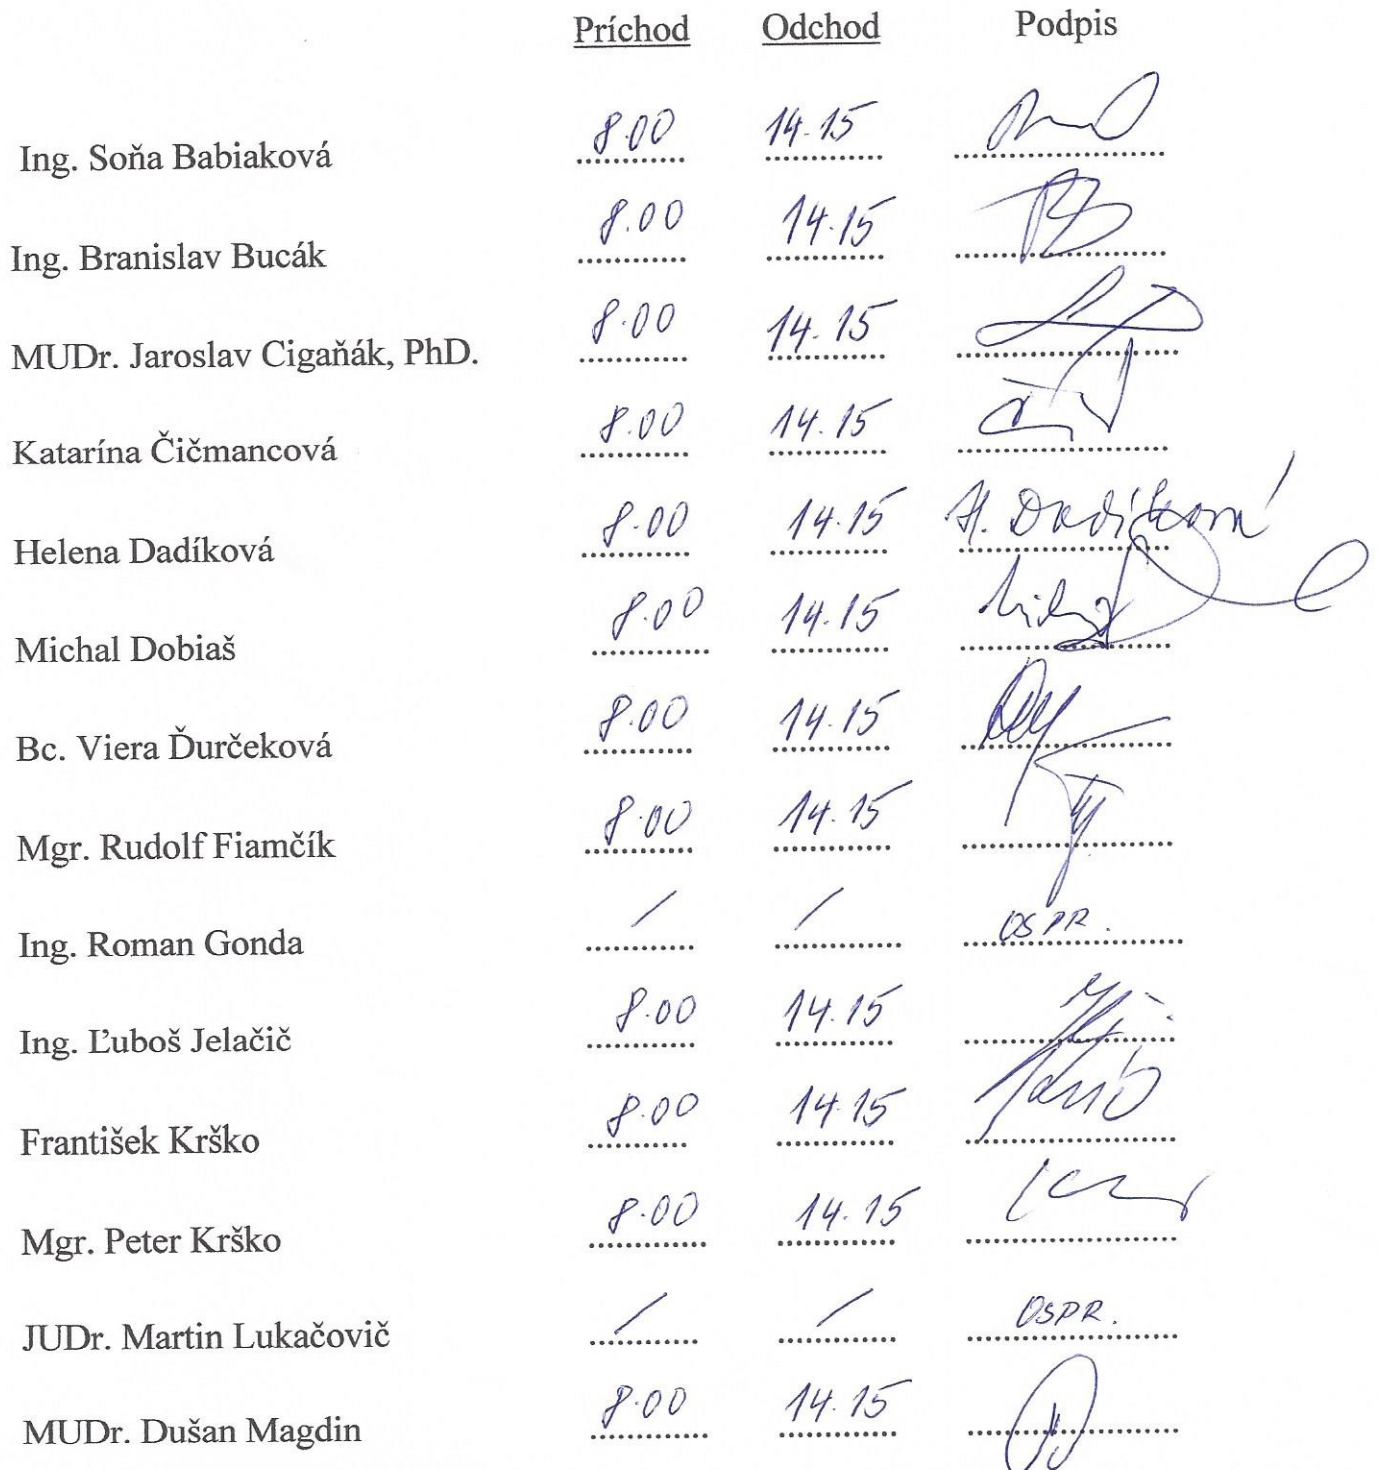 Príchod Odchod Podpis
Ing. Soňa Babiaková 8.00 14.15
Ing. Branislav Bucák 8.00 14.15
MUDr. Jaroslav Cigaňák, PhD. 8.00 14.15
Katarína Čičmancová 8.00 14.15
Helena Dadíková 8.00 14.15 H. Dadíková
Michal Dobiaš 8.00 14.15
Bc. Viera Ďurčeková 8.00 14.15
Mgr. Rudolf Fiamčík 8.00 14.15
Ing. Roman Gonda / / OSPR.
Ing. Ľuboš Jelačič 8.00 14.15
František Krško 8.00 14.15
Mgr. Peter Krško 8.00 14.15
JUDr. Martin Lukačovič / / OSPR.
MUDr. Dušan Magdin 8.00 14.15